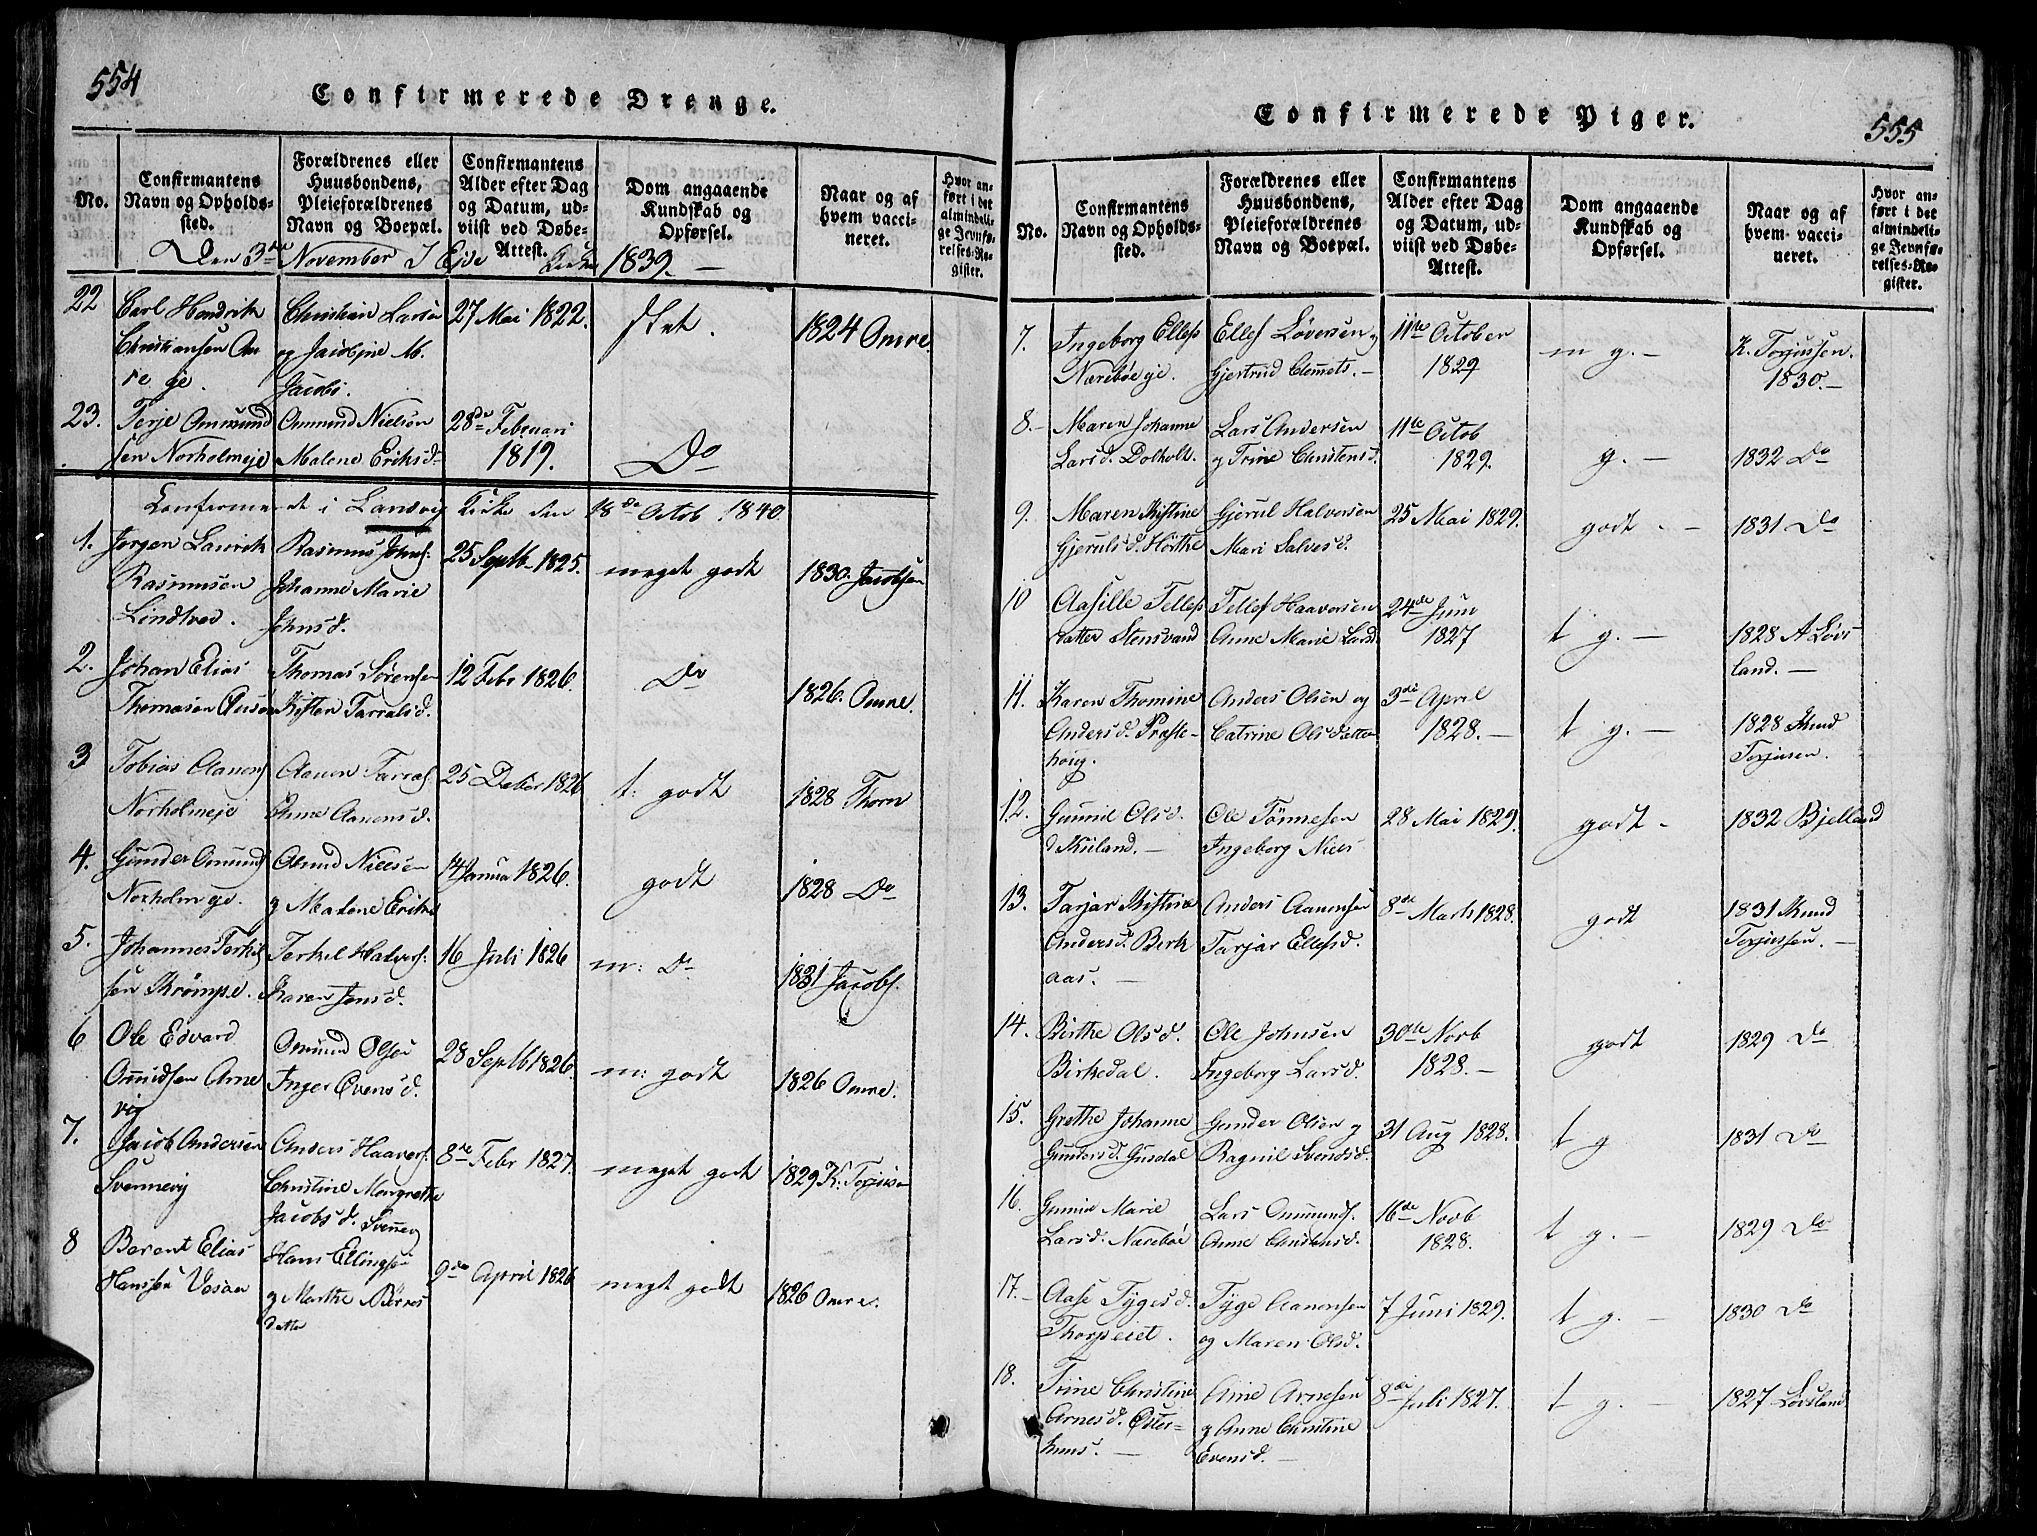 554
Confirmerede Drenge.
No.
Confirmantens
Navn og Opholds-
sted.
Forældrenes eller
Huusbondens,
Pleieforældrenes
Navn og Boepæl.
Confirmantens
Alder efter Dag
og Datum, ud-
viist ved Døbe-
Attest.
Dom angaaende
Kundskab og
Opførsel.
Naar og af
hvem vacci-
neret.
Hvor an-
ført i det
almindeli-
ge Jevnfø-
relses-Re-
gister.
Den 3de November I Eide Kirke 1839. —
22
Carl Hendrik
Christiansen Om
re eje.
Christian Larsen
og Jacobine M.
Jacobs.
27 Mai 1822.
slet.
1824 Omre.
23.
Terje Ommund
sen Norholmeje
Ommund Nielsen
Malene Eriksd
28de Februari
1819.
Do
Confirmeret i Landvig Kirke den 18de Octob 1840
1.
Jørgen Lauritz
Rasmusen
Lindtved.
Rasmus Johns:
Johanne Marie
Johnsd.
25 Septb. 1825.
meget godt
1830. Jacobsen
2.
Johan Elias
Thomasen
Thomas Sørensen
Kisten Tarralsd.
12 Febr 1826.
Do
1826. Omre.
3
Tobias Aanens
Norholmeje
Aanen Tarras.
Anne Aanensd.
25 Decbr 1826
t: godt
1828 Thorn
4.
Gunder Omunds
Norholm eje.
Omund Nielsen
g Malene Eriks
14 Janua 1826.
godt
1828 Do
5.
Johannes Terkil
sen Strømpe.
Terkel Halvors:
Karen Jensd.
16 Juli 1826
m: Do
1831 Jacobs.
6
Ole Edvard
Omundsen Arne
vig
Omund Olsen
Inger Evensd.
28 Septb 1826.
m: godt
1826 Omre.
7.
Jacob Andersen
Svennevig
Anders Haavors:
Christine Margrethe
Jacobsd. Svenneg
8de Febr 1827.
meget godt
1829 K: Torjusen
8
Berent Elias
Hanssen Vesøen
Hans Ellingsen
g Marthe Børres
datter
9de April 1826
megt godt
1826 Omre.
Confirmerede Piger.
555
No.
Confirmantens
Navn og Opholds-
sted.
Forældrenes eller
Huusbondens,
Pleieforældrenes
Navn og Boepæl.
Confirmantens
Alder efter Dag
og Datum, ud-
viist ved Døbe-
Attest.
Dom angaaende
Kundskab og
Opførsel.
Naar og af
hvem vacci-
neret.
Hvor an-
ført i det
almindeli-
ge Jevnfø-
relses-Re-
gister.
7.
Ingeborg Ellefs
Nærebøe eje.
Ellef Løversen g
Gjertrud Clemets. —
11te October
1829
m g. —
K. Torjussen.
1830. —
8. —
Maren Johanne
Larsd. Dolholt.
Lars Andersen
g Trine Christensd.
11te Octob
1829.
g. —
1832 Do
9.
Maren Kistine
Gjerulsd. Hørthe
Gjerul Halversen
Mari Salvesd.
25 Mai 1829.
godt. —
1831 Do
10
Aasille Tellefs
datter Stensvand
Tellef Haaversen
Anne Marie Larsd
24de Juni
1827
t g. —
1828 A Løvs
land. —
11.
Karen Thomine
Andersd. Præste-
houg.
Anders Olsen og
Catrine Olsdatter
3die April
1828. —
t g. —
1828 Knud
Torjusen.
12.
Gunnil Olsd.
Ole Tønnesen
Ingeborg Niels
28 Mai 1829.
godt —
1832 Bjelland
13.
Tarjar Kistine
Andersd. Birk
aas. —
Anders Aanensen
Tarjar Ellefsd.
8de Marts 1828.
godt
1831 Knud
Torjussen. —
14.
Birthe Olsd.
Birkedal.
Ole Johnsen
Ingeborg Larsd.
30de Novb
1828. —
godt
1829 Do
15.
Grethe Johanne
Gundersd. Gusdal
Gunder Olsen g
Ragnil Svendsd.
31 Aug 1828.
t g
1831 Do
16.
Gunnil Marie
Larsd. Nærebøe
Lars Ommunds.
Anne Christensd.
16de Novb
1828.
t g. —
1829 Do
17. —
Aase Tygesd.
Thorp eiet.
Tyge Aanensen
og Maren Olsd.
7 Juni 1829.
t g. —
1830 Do
18.
Trine Christine
Arnesd. Øster-
huus. —
Arne Arnesen
g Anne Christine
Evensd. —
8de Juli 1827.
t g. —
1827 Løvsland